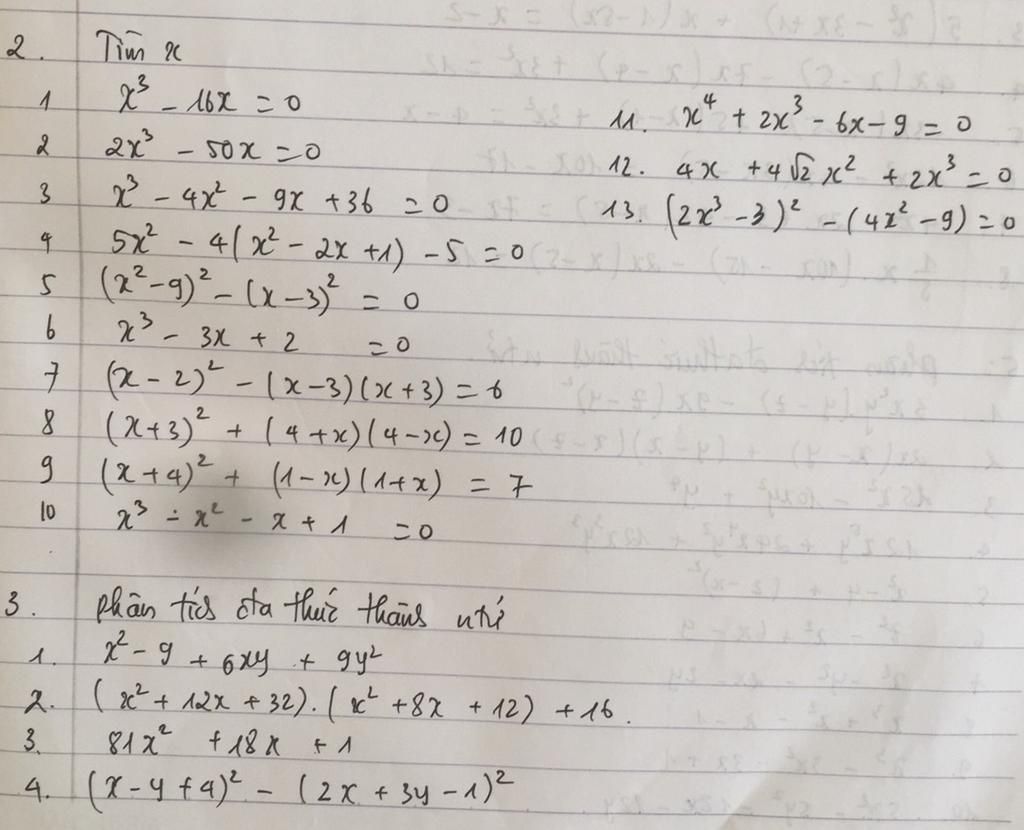 2. Tìm x
1 x³ - 16x = 0
2 2x³ - 50x = 0
3 x³ - 4x² - 9x + 36 = 0
4 5x² - 4(x² - 2x + 1) - 5 = 0
5 (x² - 9)² - (x - 3)² = 0
6 x³ - 3x + 2 = 0
7 (x - 2)² - (x - 3)(x + 3) = 6
8 (x + 3)² + (4 + x)(4 - x) = 10
9 (x + 4)² + (1 - x)(1 + x) = 7
10 x³ - x² - x + 1 = 0
11. x⁴ + 2x³ - 6x - 9 = 0
12. 4x + 4√2 x² + 2x³ = 0
13. (2x³ - 3)² - (4x² - 9) = 0
3. phân tích đa thức thành ntử
1. x² - 9 + 6xy + 9y²
2. (x² + 12x + 32).(x² + 8x + 12) + 16.
3. 81x² + 18x + 1
4. (x - y + 4)² - (2x + 3y - 1)²